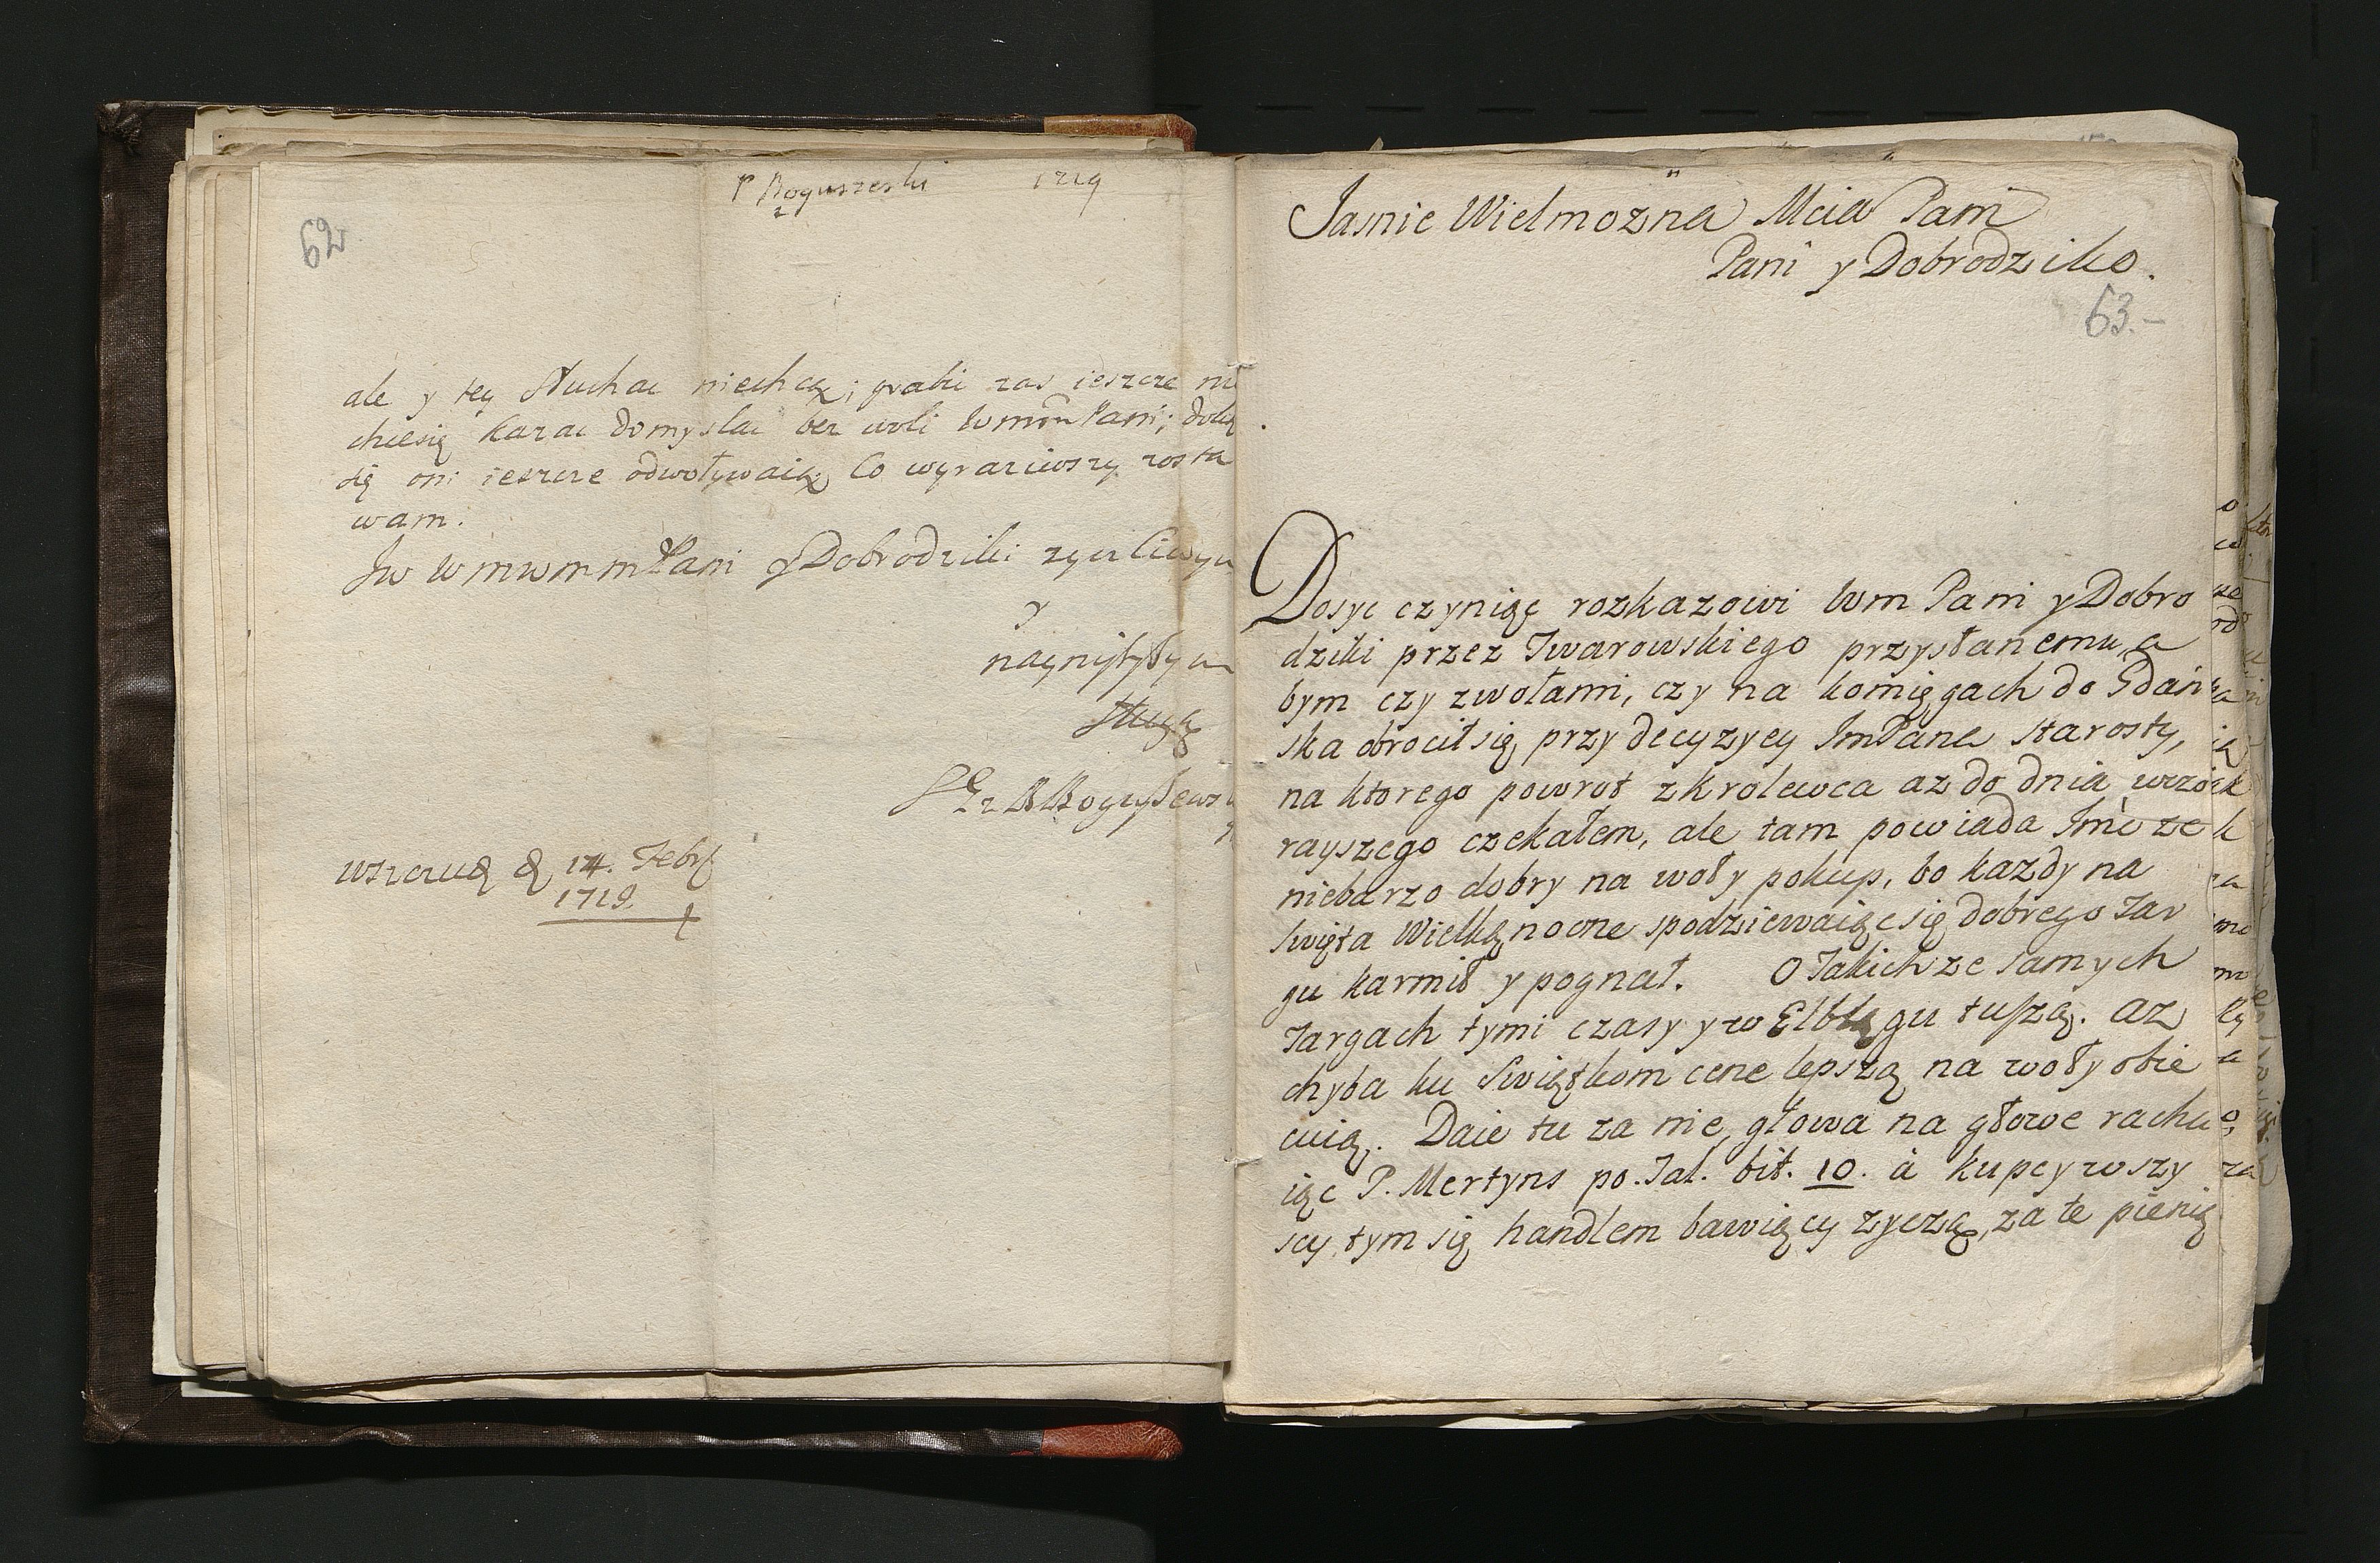 P Boguszeski 1719
62
ale y tey słuchac niechcą; grabic zas ieszcze nie
chcesię kazac domyslac bez woli Wmm Pani; dokąd
się oni ieszcze odwoływaią, Co wyraziwszy zosta
wam.
Jw WmwmmPani y Dobrodziki zyczliwym
y
nayniszszym
sługą
14. Febr
1719
Jasnie Wielmozna Mcia Pani
Pani y Dobrodziko.
63.-
Dosyc czyniąc rozkazowi Wm Pani y Dobro
dziki przez Twarowskiego przysłanemu, a
bym czy zwołami, czy na komięgach do Gdan
ska obrociłsię, przy decyzyey JmPana Starosty,
na ktorego powrot zkrolewca az do dnia wczo
rayszego czekałem, ale tam powiada Jmć ze
niebarzo dobry na woły pokup, bo kazdy na
Swięta Wielkąnocne spodziewaiącsię dobrego Tar
gu karmił y pognał. O Takichze samych
Targach tymi czasy y w Elblągu tuszą. az
chyba ku Swiątkom cene lepszą na woły obie
cuią. Daie tu za nie, głowa na głowe rachu
iąc P. Mertyns po. Tal. bit. 10. à kupcy wszy
scy, tym się handlem bawiący zyczą, za te pienią